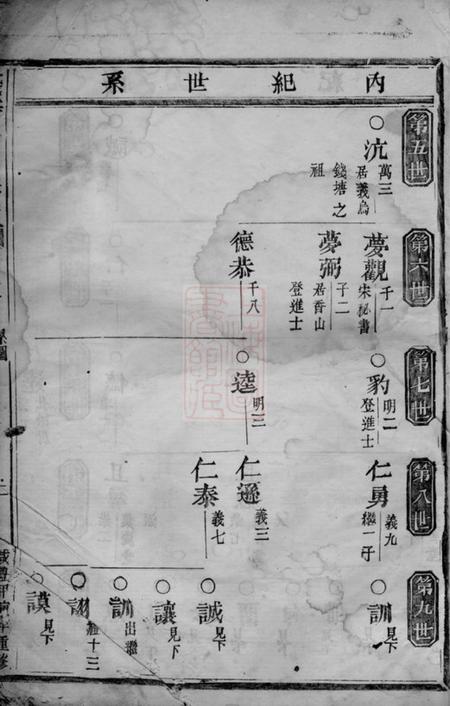 內紀世系
第五世
沆 萬三
居義烏
錢塘之
祖
第六世
夢觀 千一
宋秘書
夢弼 千二
居香山
登進士
德恭 千八
第七世
豹 明二
登進士
逵 明三
第八世
仁勇 義九
繼一子
仁遜 義三
仁泰 義七
第九世
訓 見下
誠 見下
讓 見下
訓 出繼
詡 繼十三
謨 見下